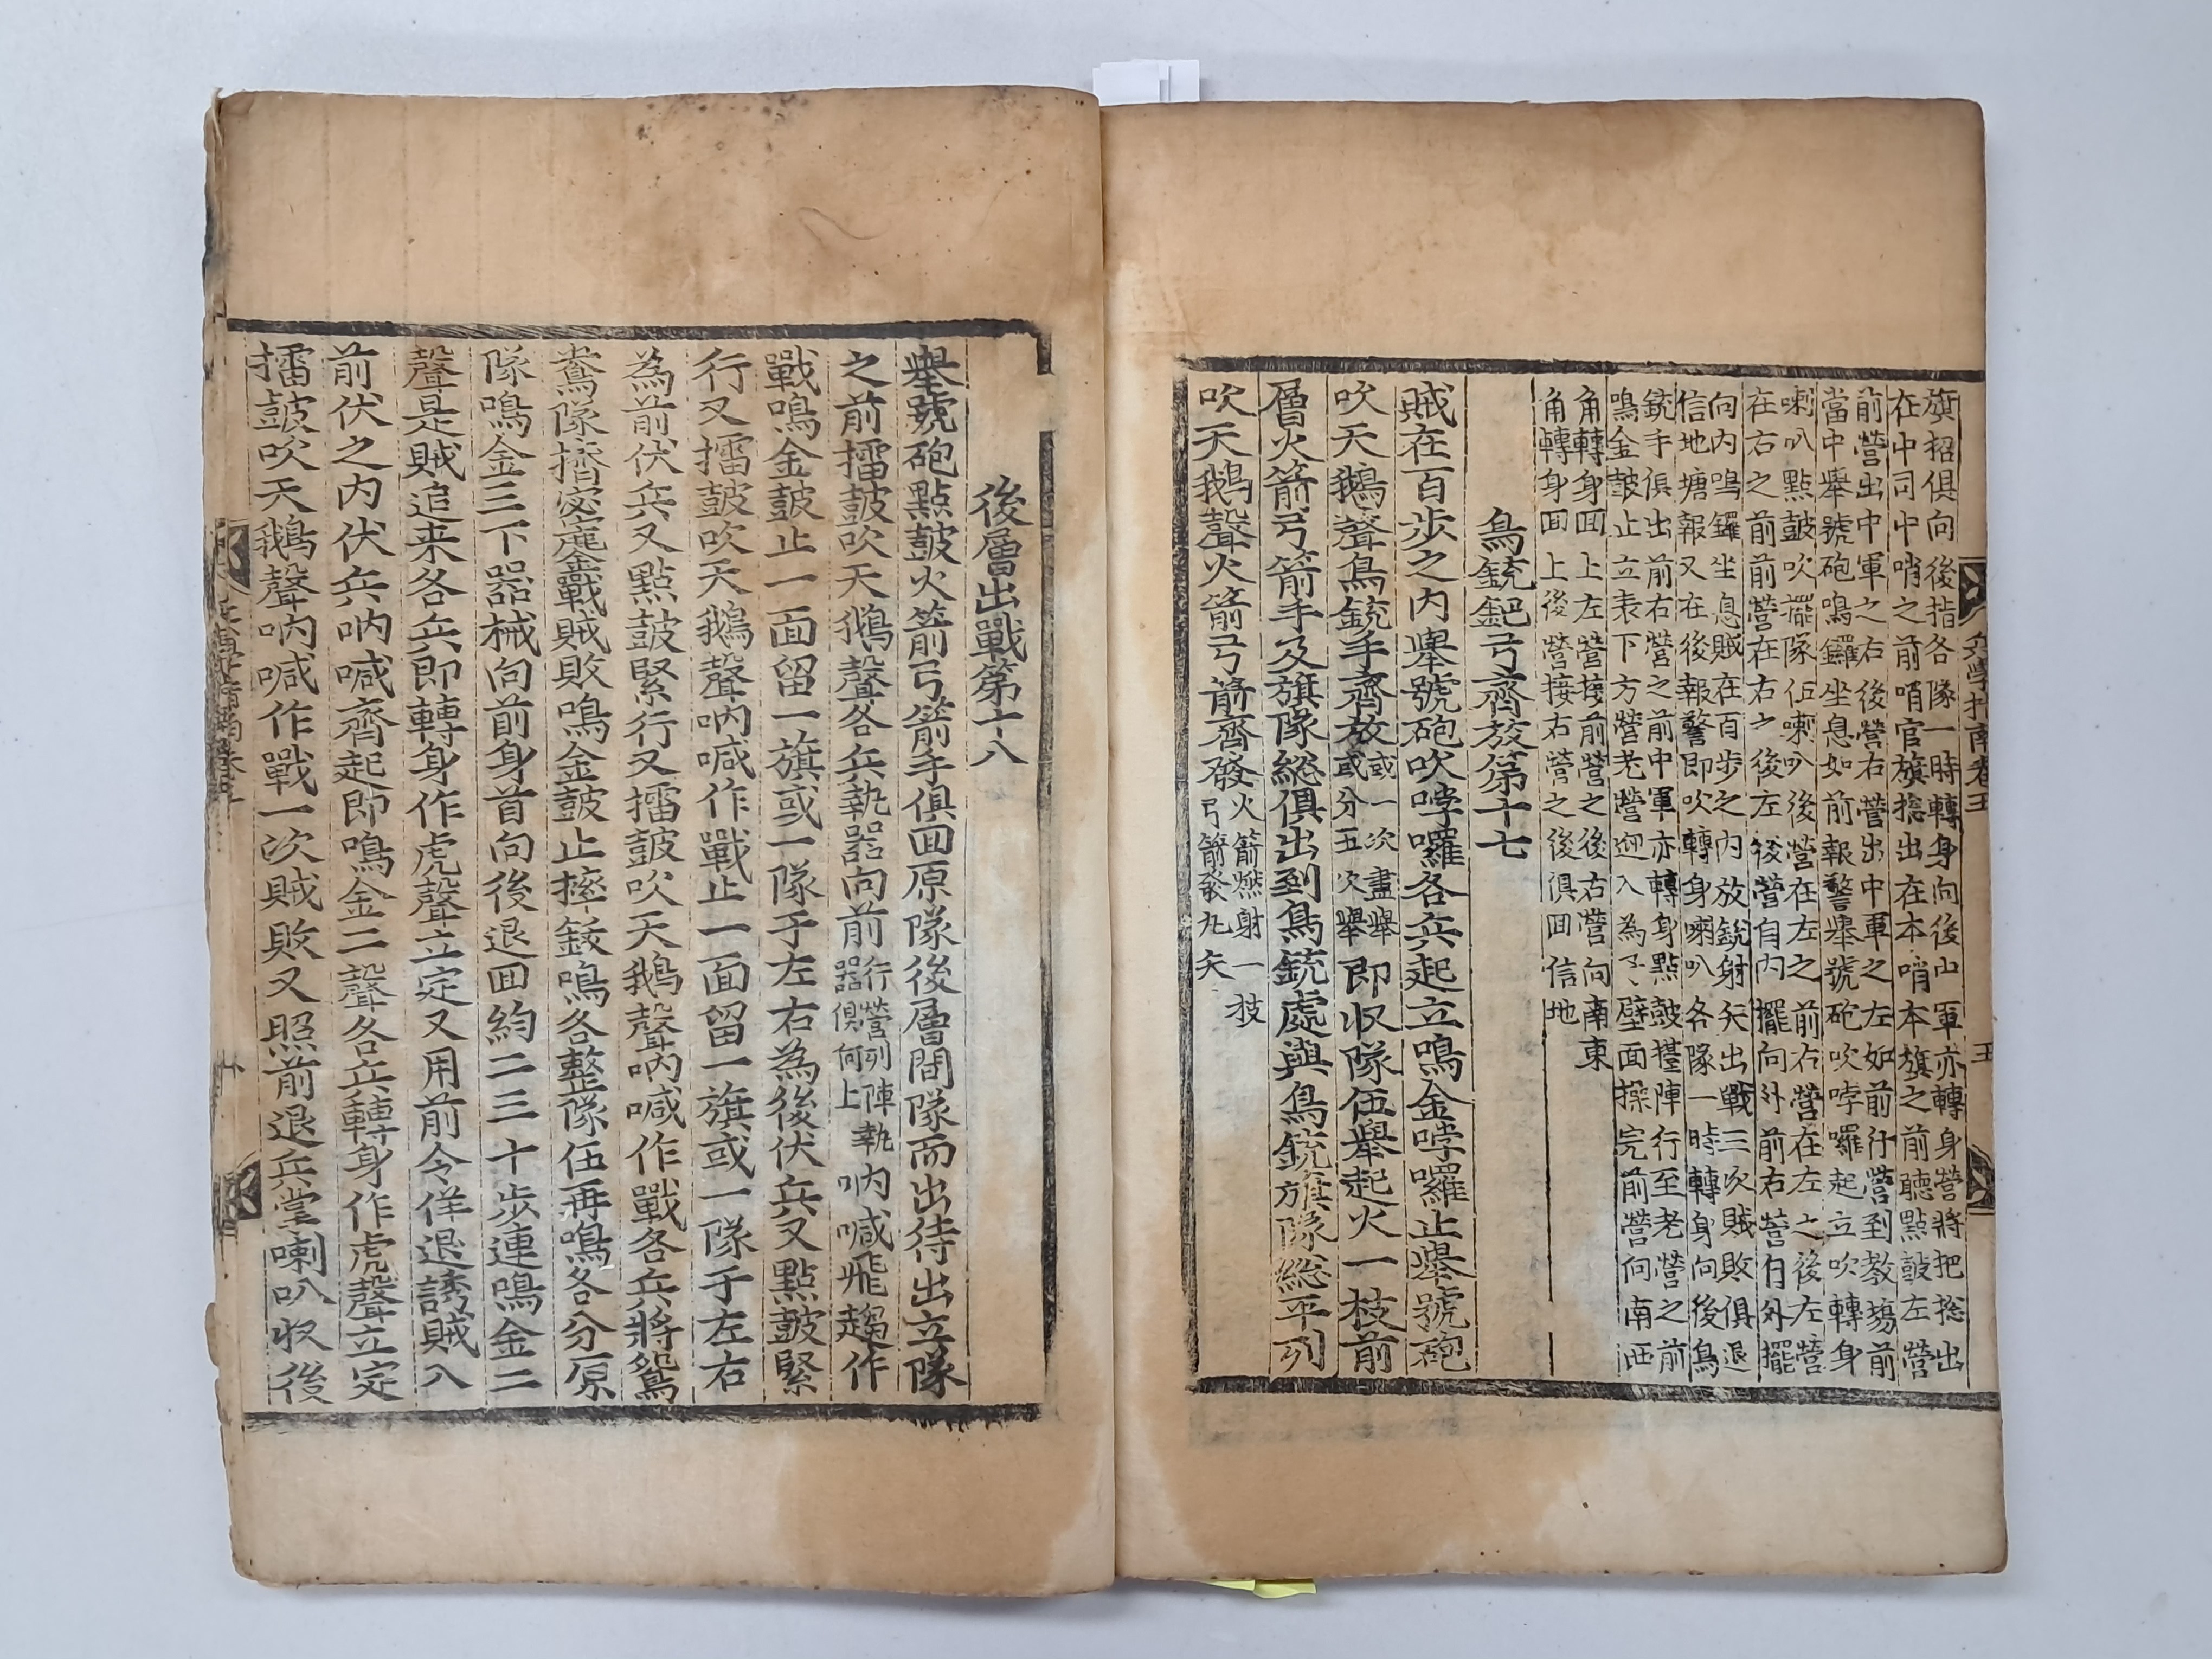 兵學指南卷五
五
旗招俱向後指各隊一時轉身向後山軍亦轉身營將把捴出
在中司中哨之前哨官旗捴出在本哨本旗之前聽點鼓左營
前營出中軍之右後營右營出中軍之左如前行營到敎塲前
當中擧號砲鳴鑼坐息如前報警擧號砲吹哱囉起立吹轉身
喇叭點鼓吹擺隊伍喇叭後營在左之前右營在左之後左營
在右之前前營在右之後左後營自內擺向外前右營自外擺
向內鳴鑼坐息賊在百步之內放銃射矢出戰三次賊敗俱退
信地塘報又在後報警即吹轉身喇叭各隊一時轉身向後鳥
銃手俱出前右營之前中軍亦轉身點鼓擡陣行至老營之前
鳴金鼓止立表下方營老營迎入為子壁面操完前營向南西
角轉身回上左營接前營之後右營向南東
角轉身回上後營接右營之後俱回信地
鳥銃鈀弓齊放第十七
賊在百步之內擧號砲吹哱囉各兵起立鳴金哱囉止擧號砲
吹天鵝聲鳥銃手齊放或一次盡擧或分五次擧即收隊伍擧起火一枝前
層火箭弓箭手及旗隊緫俱出到鳥銃處與鳥銃旗隊緫平列
吹天鵝聲火箭弓箭齊發火箭燃射一技弓箭發九矢
後層出戰第十八
擧號砲點鼓火箭弓箭手俱回原隊後層間隊而出待出立隊
之前擂鼓吹天鵝聲各兵執器向前行營列陣執器俱仰上吶喊飛趨作
戰鳴金鼓止一面留一旗或一隊于左右為後伏兵又點鼓緊
行又擂鼓吹天鵝聲吶喊作戰止一面留一旗或一隊于左右
為前伏兵又點鼓緊行又擂鼓吹天鵝聲吶喊作戰各兵將鴛
鴦隊擠密鏖戰賊敗鳴金鼓止摔鈸鳴各整隊伍再鳴各分原
隊鳴金三下器械向前身首向後退回約二三十步連鳴金二
聲是賊追来各兵即轉身作虎聲立定又用前令佯退誘賊入
前伏之內伏兵吶喊齊起即鳴金二聲各兵轉身作虎聲立定
擂鼓吹天鵝聲吶喊作戰一次賊敗又照前退兵掌喇叭收後